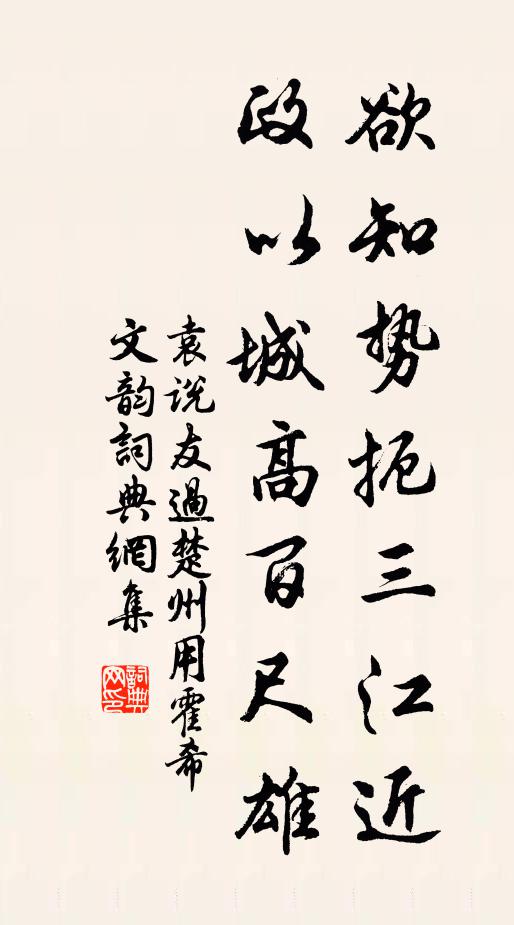 欲知势扼三江近
政以城高百尺雄
袁说友過楚州用霍希
文韵詞典網集
詞典網印